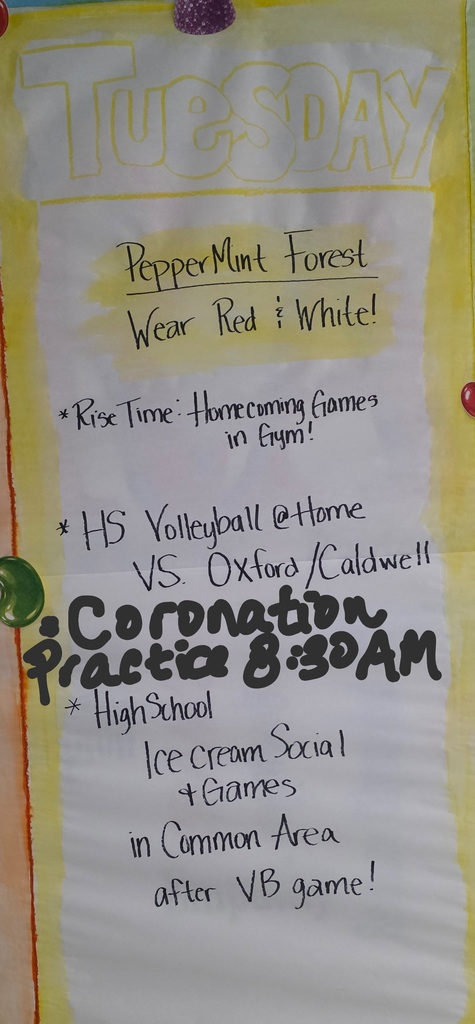 Tuesday
PepperMint Forest
Wear Red & White!
* Rise Time: Homecoming Games
in Gym!
* HS Volleyball @ Home
VS. Oxford/Caldwell
* Coronation
Practice 8:30AM
* High School
Ice cream Social
+ Games
in Common Area
after VB game!